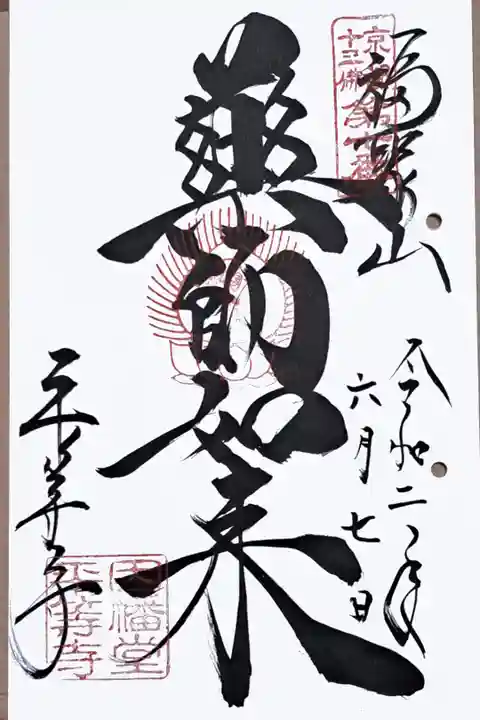 京都
十三佛
福聚山
令和二年
六月七日
藥師如来
平等寺
因幡堂
平等寺